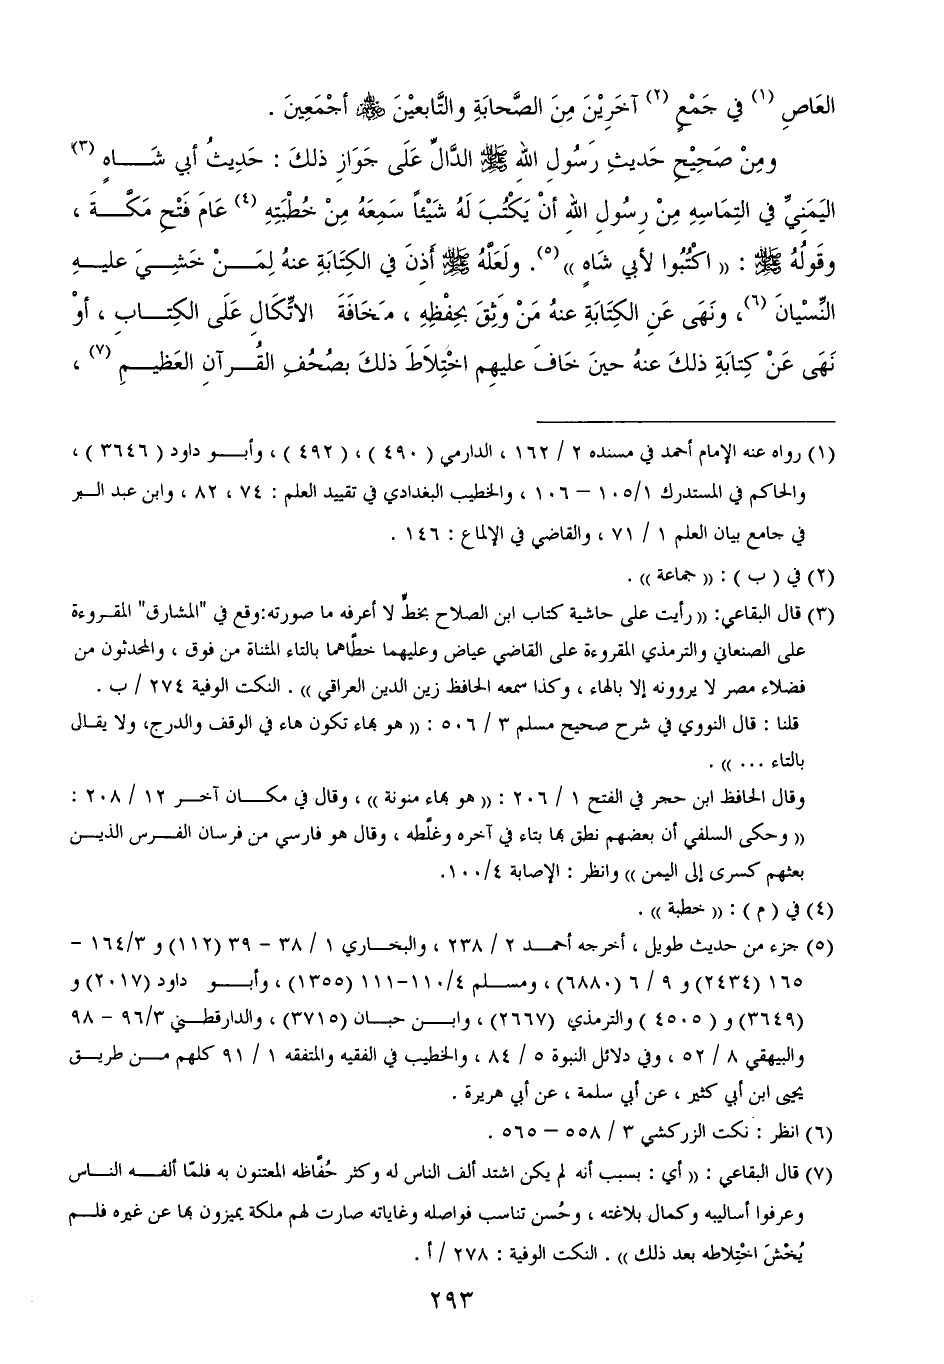 العَاصِ (١) في جَمْعٍ (٢) آخَرِيْنَ مِنَ الصَّحابَةِ والتَّابعيْنَ ﷺ أجْمَعِينَ .
ومِنْ صَحِيْحِ حَديثِ رَسُولِ اللهِ ﷺ الدَّالِّ عَلَى جَوَازِ ذلكَ : حَدِيثُ أبي شَـــاهٍ (٣)
اليَمَنِيِّ في التِمَاسِهِ مِنْ رسُولِ اللهِ أنْ يَكْتُبَ لَهُ شَيْئاً سَمِعَهُ مِنْ خُطْبَتِهِ (٤) عَامَ فَتْحِ مَكَّـــةَ ،
وقَولُهُ ﷺ : (( اكْتُبُوا لأبي شَاهٍ ))(٥). ولَعَلَّهُ ﷺ أذِنَ في الكِتَابَةِ عنهُ لِمَـــنْ خَشِـــيَ عليـــهِ
النِّسْيَانَ (٦)، ونَهَى عَنِ الكِتَابَةِ عنهُ مَنْ وَثِقَ بحِفْظِهِ ، مَخَافَةَ الاتِّكَالِ عَلَى الكِتـــابِ ، أوْ
نَهَى عَنْ كِتابَةِ ذلكَ عنهُ حينَ خَافَ عليهِم اخْتِلاَطَ ذلكَ بصُحُفِ القُـــرآنِ العَظيـــمِ (٧) ،
(١) رواه عنه الإمام أحمد في مسنده ٢ / ١٦٢ ، الدارمي ( ٤٩٠ ) ، ( ٤٩٢ ) ، وأبـــو داود ( ٣٦٤٦ ) ،
والحاكم في المستدرك ١٠٥/١ – ١٠٦ ، والخطيب البغدادي في تقييد العلم : ٧٤ ، ٨٢ ، وابن عبد الـــبر
في جامع بيان العلم ١ / ٧١ ، والقاضي في الإلماع : ١٤٦ .
(٢) في ( ب ) : (( جماعة )) .
(٣) قال البقاعي: (( رأيت على حاشية كتاب ابن الصلاح بخطٍّ لا أعرفه ما صورته:وقع في "المشارق" المقـروءة
على الصنعاني والترمذي المقروءة على القاضي عياض وعليهما خطَّاهما بالتاء المثناة من فوق ، والمحدثون من
فضلاء مصر لا يروونه إلا بالهاء ، وكذا سمعه الحافظ زين الدين العراقي )) . النكت الوفية ٢٧٤ / ب .
قلنا : قال النووي في شرح صحيح مسلم ٣ / ٥٠٦ : (( هو بهاء تكون هاء في الوقف والدرج، ولا يقـال
بالتاء ... )) .
وقال الحافظ ابن حجر في الفتح ١ / ٢٠٦ : (( هو بهاء منونة )) ، وقال في مكـــان آخـــر ١٢ / ٢٠٨ :
(( وحكى السلفي أن بعضهم نطق بها بتاء في آخره وغلَّطه ، وقال هو فارسي من فرسان الفـــرس الذيـــن
بعثهم كسرى إلى اليمن )) وانظر : الإصابة ١٠٠/٤.
(٤) في ( م ) : (( خطبة )) .
(٥) جزء من حديث طويل ، أخرجه أحمـــد ٢ / ٢٣٨ ، والبخاري ١ / ٣٨ – ٣٩ (١١٢) و ١٦٤/٣ –
١٦٥ (٢٤٣٤) و ٩ / ٦ (٦٨٨٠) ، ومســـلم ١١٠/٤–١١١ (١٣٥٥) ، وأبـــو داود (٢٠١٧) و
(٣٦٤٩) و ( ٤٥٠٥ ) والترمذي (٢٦٦٧) ، وابـــن حبـــان (٣٧١٥) ، والدارقطـــني ٩٦/٣ – ٩٨
والبيهقي ٨ / ٥٢ ، وفي دلائل النبوة ٥ / ٨٤ ، والخطيب في الفقيه والمتفقه ١ / ٩١ كلهم مـــن طريـــق
يحيى ابن أبي كثير ، عن أبي سلمة ، عن أبي هريرة .
(٦) انظر : نكت الزركشي ٣ / ٥٥٨ – ٥٦٥ .
(٧) قال البقاعي : (( أي : بسبب أنه لم يكن اشتد ألف الناس له وكثر حُفَّاظه المعتنون به فلمّا ألفـــه النـــاس
وعرفوا أساليبه وكمال بلاغته ، وحُسن تناسب فواصله وغاياته صارت لهم ملكة يميزون بها عن غيره فلـــم
يُخْشَ اخْتِلاطه بعد ذلك )) . النكت الوفية : ٢٧٨ / أ .
٢٩٣